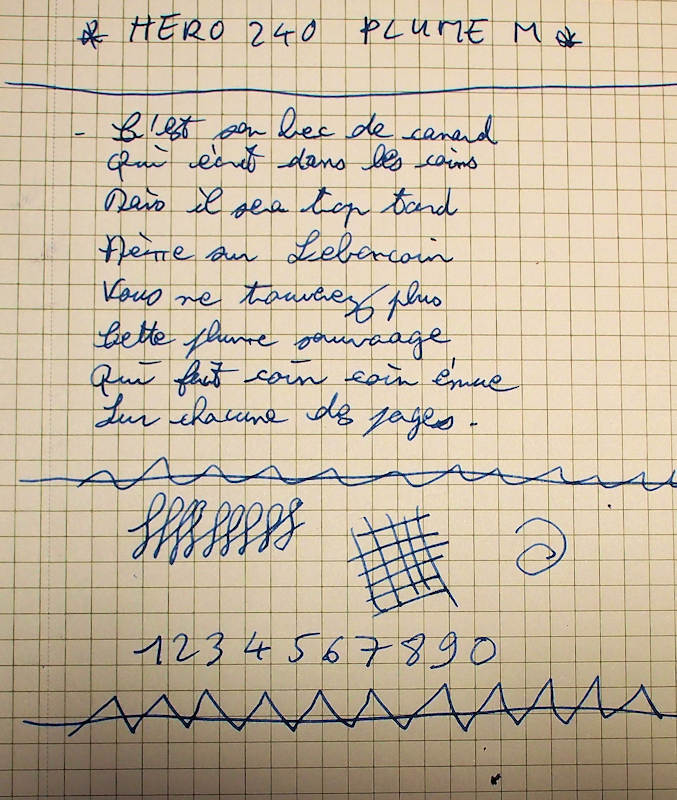 * HERO 240 PLUME M *
- C'est son bec de canard
Qui écrit dans les coins
Mais il sera trop tard
Même sur Leboncoin
Vous ne trouverez plus
Cette plume sauvaage
Qui fait coin coin émue
Sur chacune des pages.
1234567890